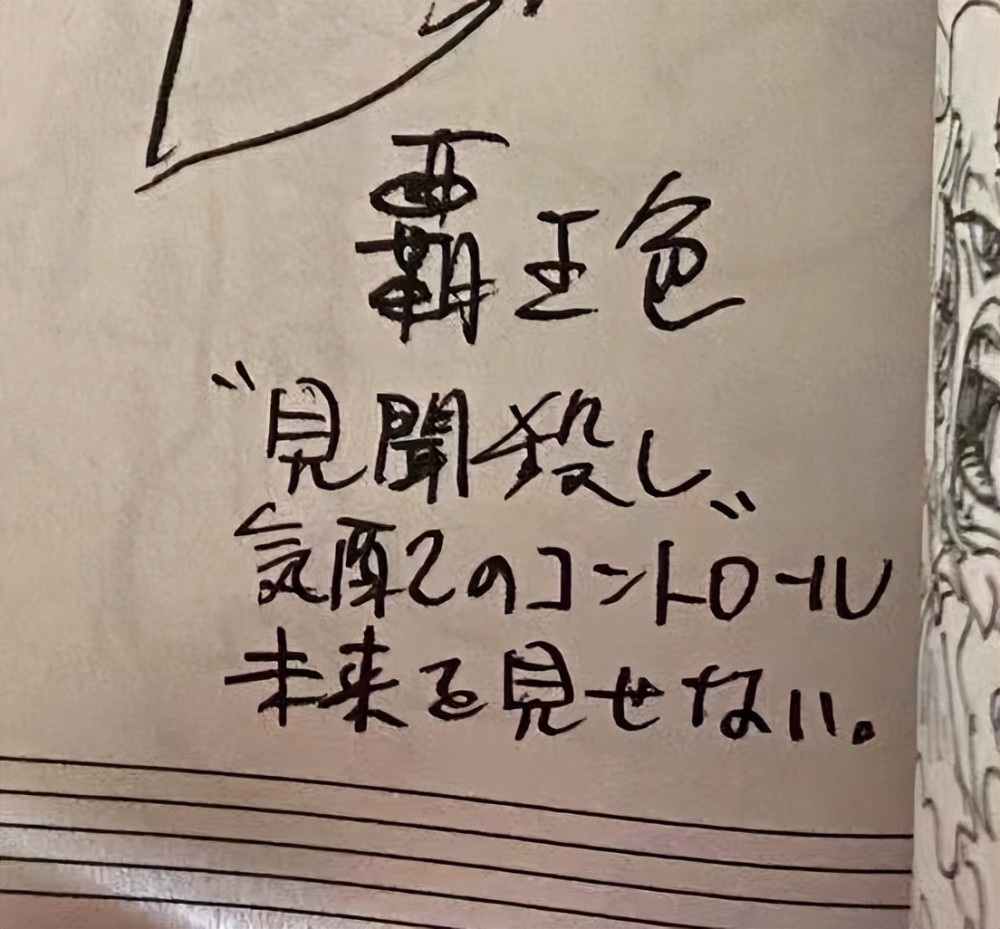 覇王色
〝見聞殺し〟
気配のコントロール
未来を見せない。